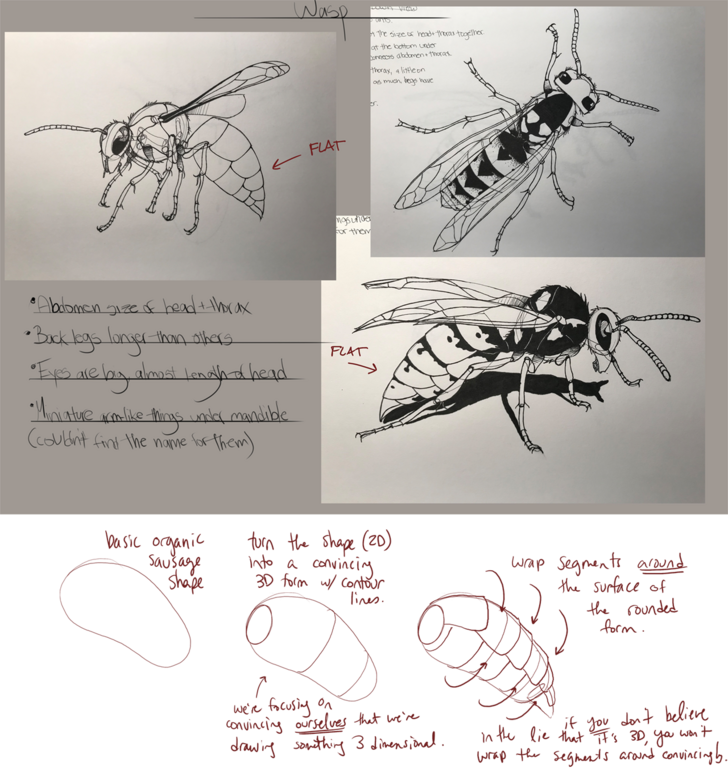 Wasp
the size of head + thorax together
at the bottom under
connects abdomen + thorax
thorax, a little on
as much, legs have
FLAT
for them
• Abdomen size of head + thorax
• Back legs longer than others
• Eyes are big almost length of head
• Miniature arm-like things under mandible
(couldn't find the name for them)
FLAT
basic organic
sausage
shape
turn the shape (2D)
into a convincing
3D form w/ contour
lines.
we're focusing on
convincing ourselves that we're
drawing something 3 dimensional.
wrap segments around
the surface of
the rounded
form.
if you don't believe
in the lie that it's 3D, you won't
wrap the segments around convincingly.